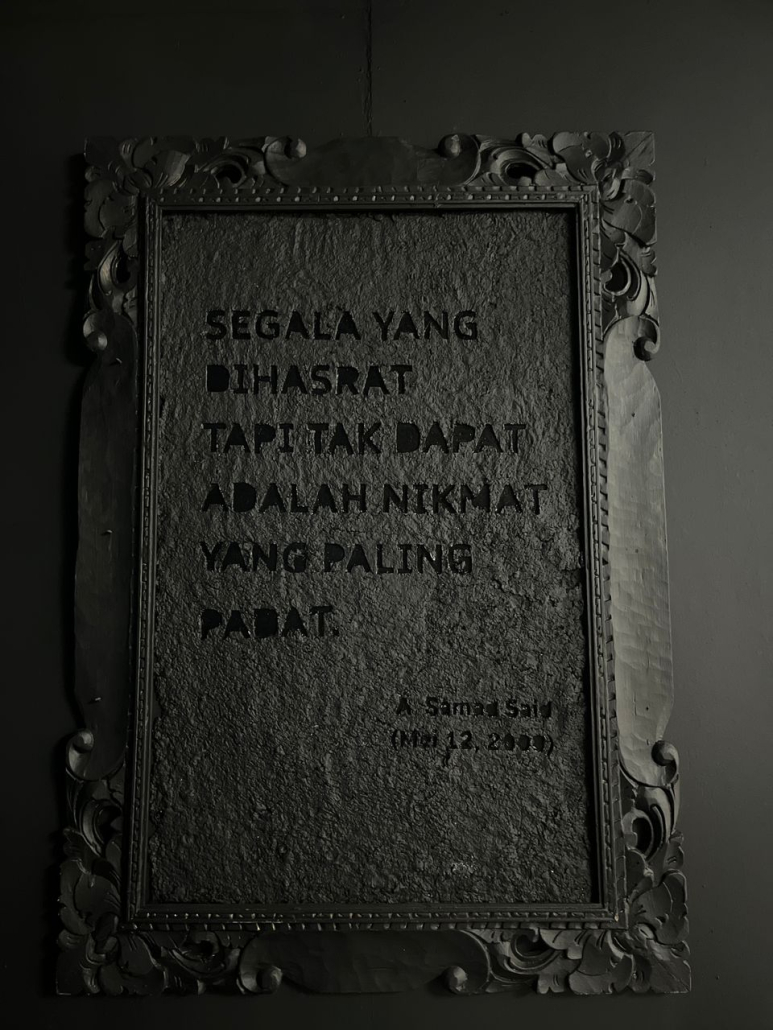 SEGALA YANG
DIHASRAT
TAPI TAK DAPAT
ADALAH NIKMAT
YANG PALING
PADAT.
A. Samad Said
(Mei 12, 2009)